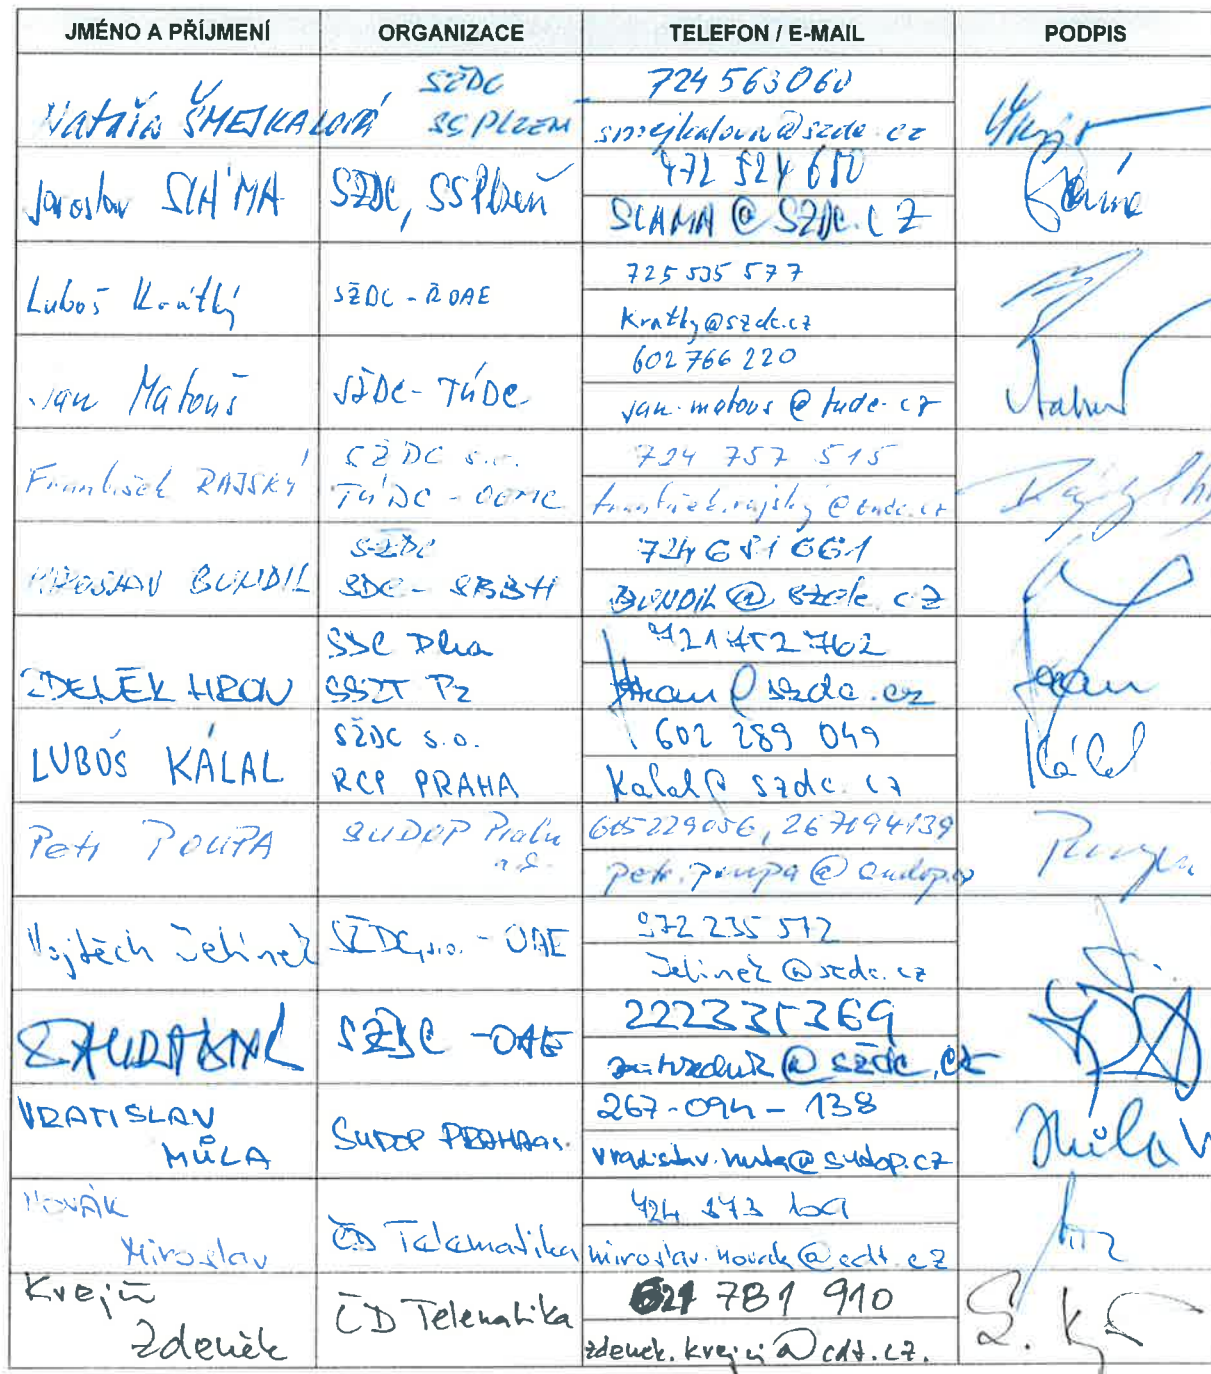 JMÉNO A PŘÍJMENÍ ORGANIZACE TELEFON / E-MAIL PODPIS
Nataša ŠMEJKALOVÁ SŽDC SS PLZEŇ 724 563 060
smejkalova@szdc.cz
Jaroslav SLÁMA SŽDC, SS Plzeň 972 524 680
SLAMA@SZDC.CZ
Luboš Krátký SŽDC - ŘOAE 725 535 577
Kratky@szdc.cz
Jan Matouš SŽDC - TÚDC 602 766 220
jan.matous@tudc.cz
František RAJSKÝ SŽDC s.o. 724 757 515
TÚDC -
MIROSLAV BUNDIL SŽDC 724 681 661
SDC - BUNDIL@szdc.cz
ZDENĚK HRON SDC Praha 721 452 762
SSZT Pz Hron@szdc.cz
LUBOŠ KÁLAL SŽDC s.o. 602 289 049
RCP PRAHA Kalal@szdc.cz
Petr POUPA SUDOP Praha a.s. 605229056, 267094139
petr.poupa@sudop.cz
Vojtěch Jelínek SŽDC, s.o. - OAE 972 235 572
Jelinek@szdc.cz
SŽDC - OAE
@szdc.cz
VRATISLAV MŮLA SUDOP PRAHA a.s. 267-094-138
vratislav.mula@sudop.cz Můla V
NOVÁK Miroslav ČD Telematika
miroslav.novak@cdt.cz
Krejčí Zdeněk ČD Telematika 781 910
zdenek.krejci@cdt.cz.